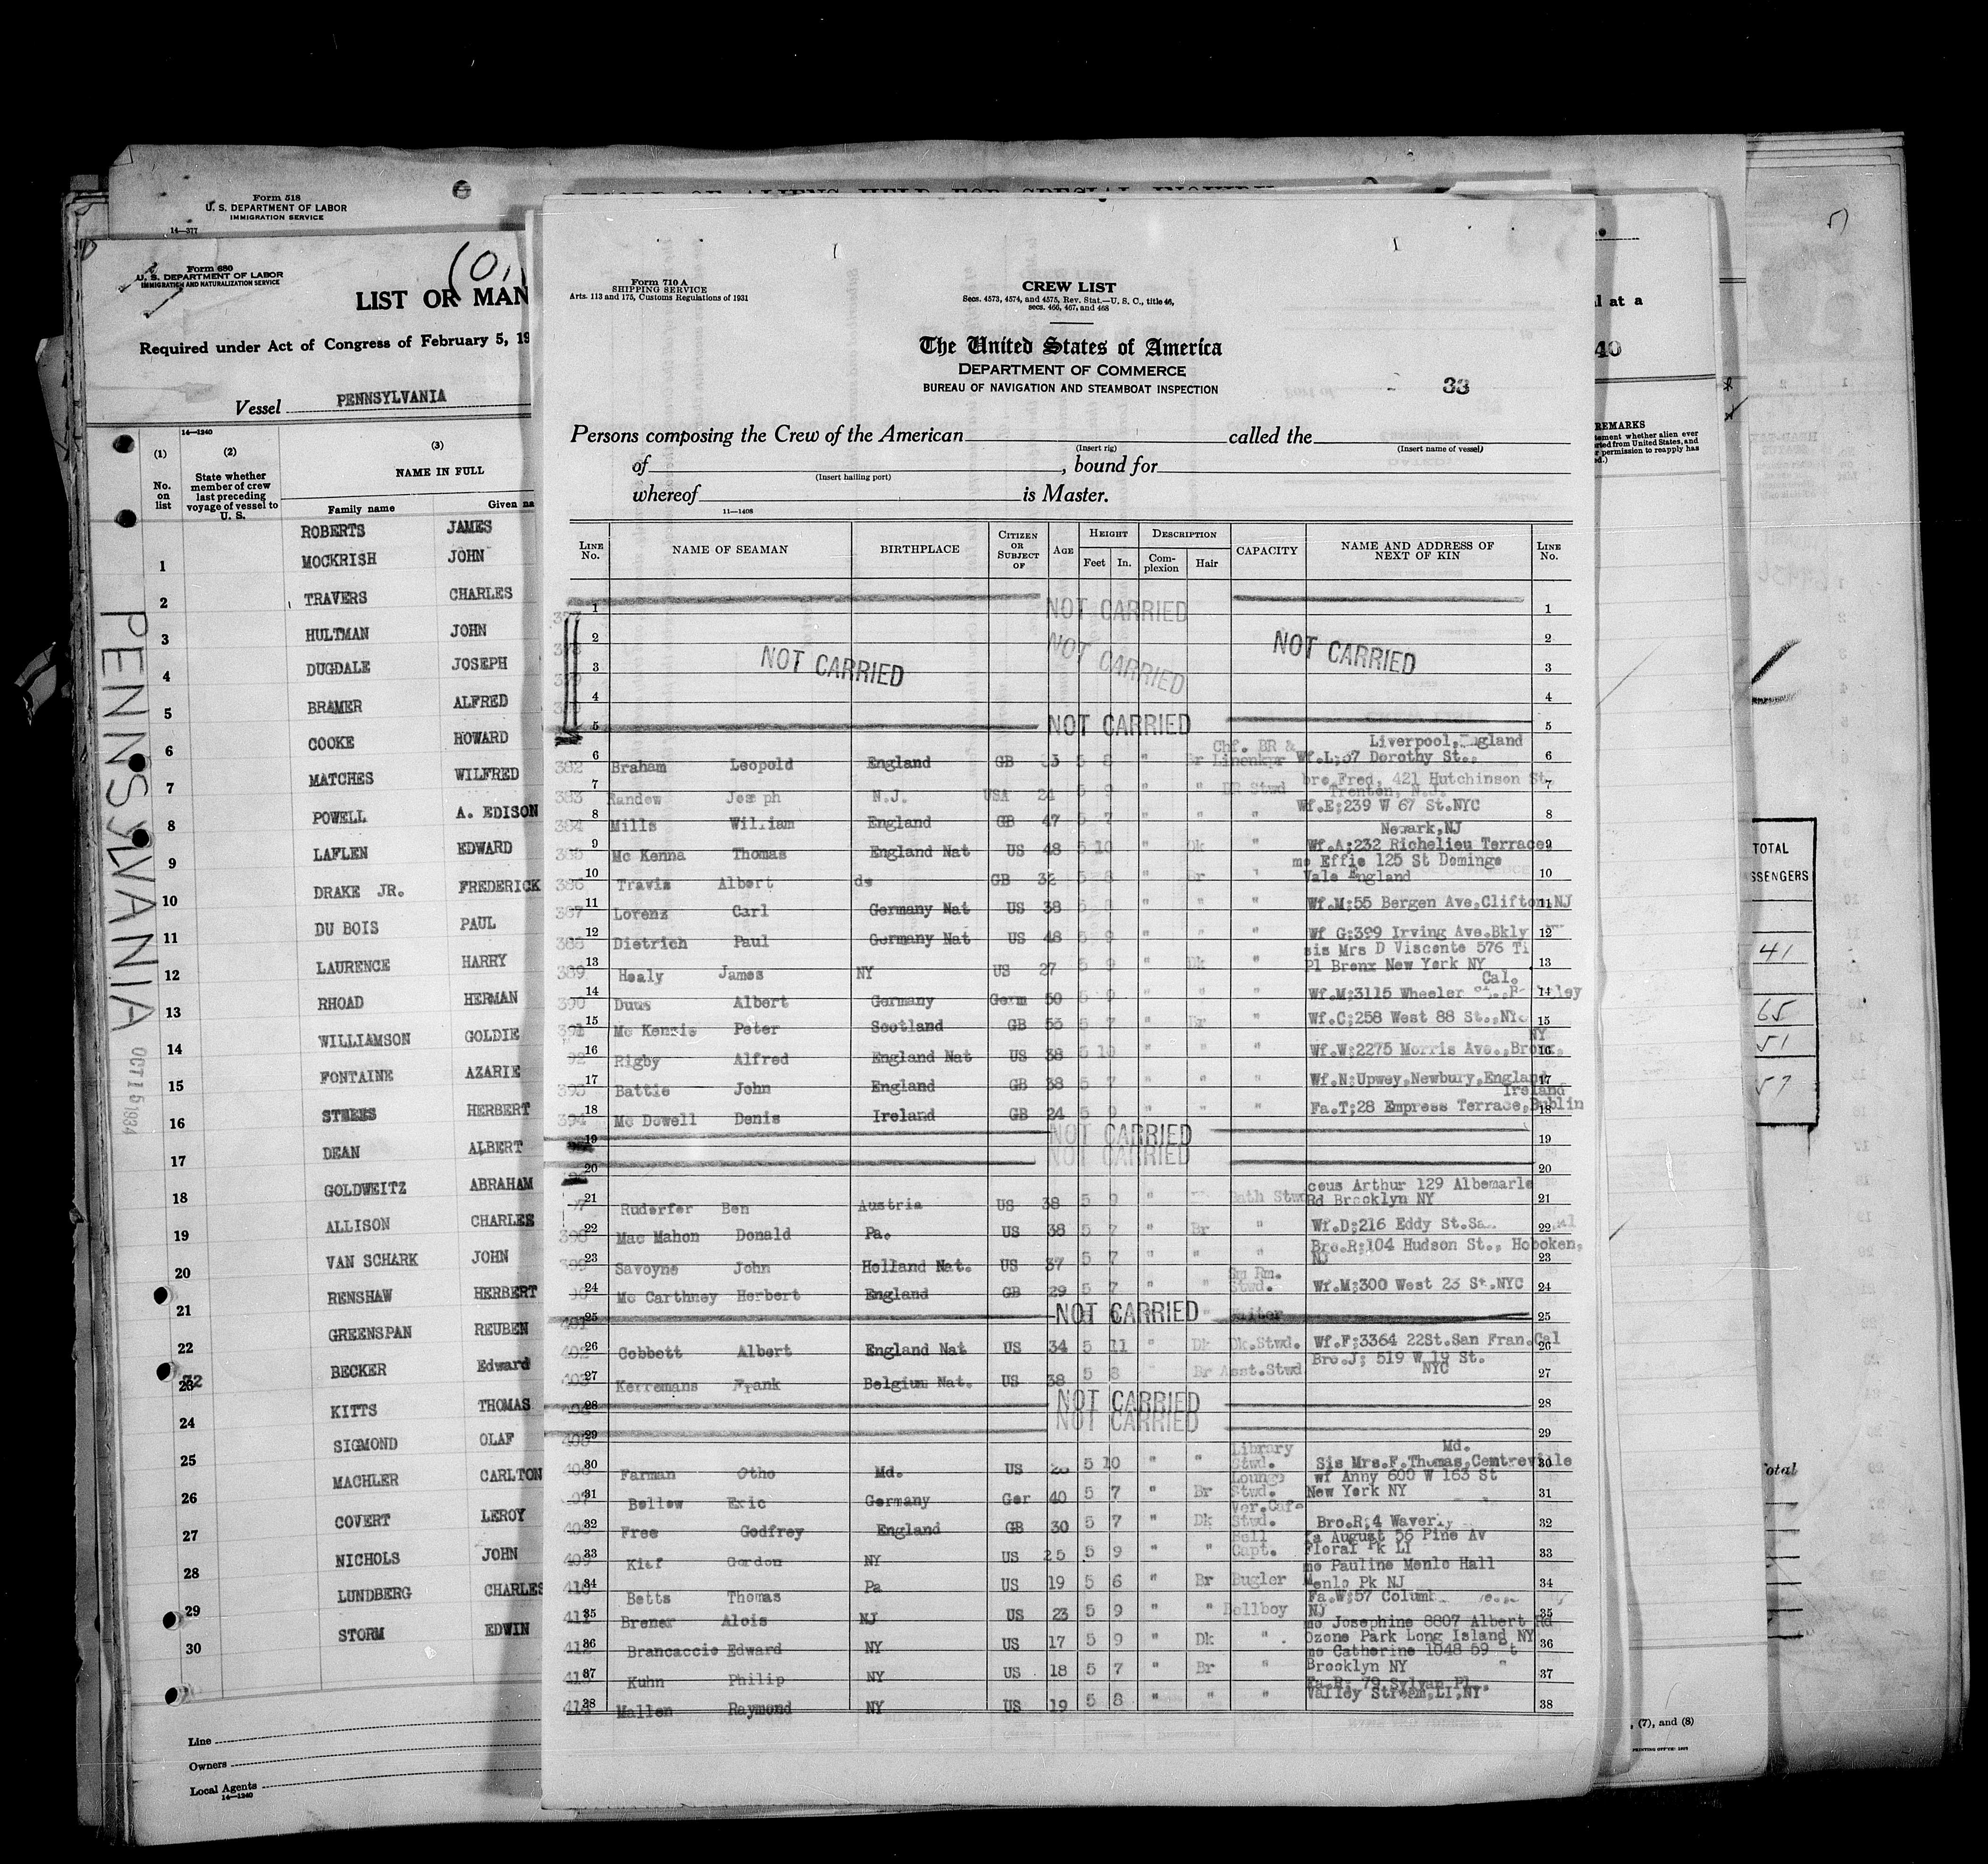 RECORD OF ALIENS HELD FOR SPECIAL INQUIRY
Form 518
U. S. DEPARTMENT OF LABOR
IMMIGRATION SERVICE
14—377
Form 680
U. S. DEPARTMENT OF LABOR
IMMIGRATION AND NATURALIZATION SERVICE
LIST OR MAN
Required under Act of Congress of February 5, 19
Vessel PENNSYLVANIA
14—1240
(1) (2) (3)
No. on list
State whether member of crew last preceding voyage of vessel to U. S.
NAME IN FULL
Family name Given na
ROBERTS JAMES
1 MOCKRISH JOHN
2 TRAVERS CHARLES
3 HULTMAN JOHN
4 DUGDALE JOSEPH
5 BRAMER ALFRED
6 COOKE HOWARD
7 MATCHES WILFRED
8 POWELL A. EDISON
9 LAFLEN EDWARD
10 DRAKE JR. FREDERICK
11 DU BOIS PAUL
12 LAURENCE HARRY
13 RHOAD HERMAN
14 WILLIAMSON GOLDIE
15 FONTAINE AZARIE
16 STEES HERBERT
17 DEAN ALBERT
18 GOLDWEITZ ABRAHAM
19 ALLISON CHARLES
20 VAN SCHARK JOHN
21 RENSHAW HERBERT
22 GREENSPAN REUBEN
23 BECKER Edward
24 KITTS THOMAS
25 SIGMOND OLAF
26 MACHLER CARLTON
27 COVERT LEROY
28 NICHOLS JOHN
29 LUNDBERG CHARLES
30 STORM EDWIN
PENNSYLVANIA
OCT 15 1934
Line
Owners
Local Agents
14—1240
Form 710 A
SHIPPING SERVICE
Arts. 113 and 175, Customs Regulations of 1931
CREW LIST
Secs. 4573, 4574, and 4575, Rev. Stat.—U. S. C., title 46,
secs. 466, 467, and 468
The United States of America
DEPARTMENT OF COMMERCE
BUREAU OF NAVIGATION AND STEAMBOAT INSPECTION
33
Persons composing the Crew of the American called the
(Insert rig) (Insert name of vessel)
of , bound for
(Insert hailing port)
whereof is Master.
11—1408
LINE No. NAME OF SEAMAN BIRTHPLACE CITIZEN OR SUBJECT OF AGE HEIGHT Feet In. DESCRIPTION Complexion Hair CAPACITY NAME AND ADDRESS OF NEXT OF KIN LINE No.
1 NOT CARRIED 1
2 NOT CARRIED NOT CARRIED 2
3 NOT CARRIED 3
4 4
5 NOT CARRIED 5
Chf. BR & Liverpool, England
382 6 Braham Leopold England GB 5 8 " Br Linenkpr Wf.L;37 Dorothy St., 6
bro Fred, 421 Hutchinson St
383 7 Randow Joseph N.J. USA 24 5 9 " " BR Stwd Trenton, N.J. 7
384 8 Mills William England GB 47 5 7 " " " Wf.E;239 W 67 St.NYC 8
Newark,NJ
385 9 Mc Kenna Thomas England Nat US 48 5 10 " Dk " Wf.A;232 Richelieu Terrace 9
mo Effie 125 St Domingo
386 10 Travis Albert do GB 32 5 8 " Br " Vale England 10
387 11 Lorenz Carl Germany Nat US 38 5 " " " Wf.M;55 Bergen Ave,Clifton NJ 11
388 12 Dietrich Paul Germany Nat US 48 5 9 " " " Wf G;399 Irving Ave.Bkly 12
sis Mrs D Visconte 576
389 13 Healy James NY US 27 5 9 " Dk " Pl Bronx New York NY 13
Cal.
390 14 Duus Albert Germany Germ 50 5 9 " " " Wf.M;3115 Wheeler 14
391 15 Mc Kenzie Peter Scotland GB 53 5 7 " Br " Wf.C;258 West 88 St.,NYC 15
NY
392 16 Rigby Alfred England Nat US 38 5 10 " " " Wf.W;2275 Morris Ave.,Bronx, 16
393 17 Battle John England GB 38 5 7 " " " Wf.N;Upwey,Newbury,England 17
Ireland
394 18 Mc Dowell Denis Ireland GB 24 5 9 " " " Fa.T;28 Empress Terrace,Dublin 18
19 NOT CARRIED 19
20 NOT CARRIED 20
Arthur 129 Albemarle
21 Ruderfer Ben Austria US 38 5 9 " Bath Stwd Rd Brooklyn NY 21
398 22 Mac Mahon Donald Pa. US 38 5 7 " Br " Wf.D;216 Eddy St. 22
Bro.R;104 Hudson St., Hoboken,
399 23 Savoyne John Holland Nat. US 37 5 7 " " " NJ 23
Sm Rm.
24 Mc Carthney Herbert England GB 29 5 7 " " Stwd. Wf.M;300 West 23 St.NYC 24
401 25 NOT CARRIED Waiter 25
402 26 Cobbett Albert England Nat US 34 5 11 " Dk Dk.Stwd. Wf.F;3364 22St.San Fran.Cal 26
Bro.J; 519 W 19 St.
403 27 Kerremans Frank Belgium Nat. US 38 5 8 " Br Asst.Stwd NYC 27
28 NOT CARRIED 28
29 NOT CARRIED 29
Library Md.
406 30 Farman Otho Md. US 5 10 " " Stwd. Sis Mrs.F.Thomas,Centreville 30
Lounge wf Anny 600 W 163 St
31 Bellow Eric Germany Ger 40 5 7 " Br Stwd. New York NY 31
Ver.Cafe
408 32 Free Godfrey England GB 30 5 7 " Dk Stwd. Bro.R;4 Waverly 32
Bell fa August 56 Pine Av
409 33 Kief Gordon NY US 25 5 9 " " Capt. Floral Pk LI 33
mo Pauline Menlo Hall
410 34 Betts Thomas Pa US 19 5 6 " Br Bugler Menlo Pk NJ 34
Fa.W;57
411 35 Brener Alois NJ US 23 5 9 " " Bellboy NJ 35
mo Josephine 8807 Albert Rd
412 36 Brancaccio Edward NY US 17 5 9 " Dk " Ozone Park Long Island NY 36
mo Catherine 1048 59 t
413 37 Kuhn Philip NY US 18 5 7 " Br " Brooklyn NY 37
Fa.R; 79 Sylvan Pl.,
414 38 Mallen Raymond NY US 19 5 8 " " " Valley Stream,LI,NY 38
al at a
40
REMARKS
TOTAL
SSENGERS
41
65
51
57
otal
, (7), and (8)